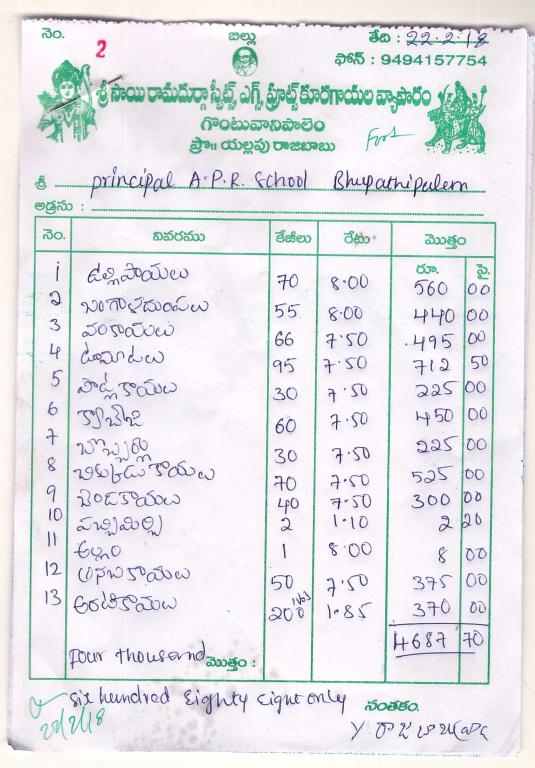 నెం. బిల్లు తేది : 22.2.18
2 ఫోన్ : 9494157754
శ్రీ సాయి రామదుర్గా స్వీట్స్ ఎగ్స్ ఫ్రూట్స్ కూరగాయల వ్యాపారం
గొంటువానిపాలెం
ప్రొ॥ యల్లపు రాజబాబు
శ్రీ principal A.P.R. School Bhupathipalem
అడ్రసు :
నెం. వివరము కేజీలు రేటు మొత్తం
రూ. పై.
1 ఉల్లిపాయలు 70 8.00 560 00
2 బంగాళదుంపలు 55 8.00 440 00
3 వంకాయలు 66 7.50 495 00
4 టమాటలు 95 7.50 712 50
5 పొట్లకాయలు 30 7.50 225 00
6 క్యాబేజి 60 7.50 450 00
7 బొబ్బర్లు 30 7.50 225 00
8 చిక్కుడుకాయలు 70 7.50 525 00
9 బెండకాయలు 40 7.50 300 00
10 పచ్చిమిర్చి 2 1.10 2 20
11 అల్లం 1 8.00 8 00
12 ఆనబకాయలు 50 7.50 375 00
13 అరటికాయలు 200 1.85 370 00
4687 70
Four thousand మొత్తం :
Six hundred Eighty Eight only సంతకం.
22/2/18 Y. రాజబాబు